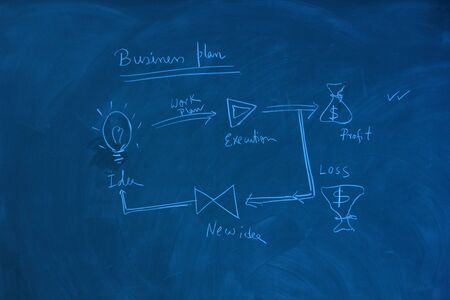 Business plan
Work
plan
Execution
$
Profit
Idea
Loss
$
New idea